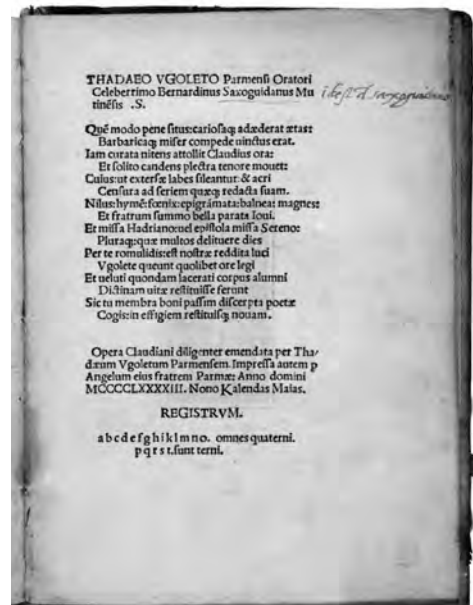 THADAEO VGOLETO Parmensi Oratori
Celebertimo Bernardinus Saxoguidanus Mu
tinẽsis .S.
Quẽ modo pene situs: cariosaq; adæderat ætas:
Barbaricaq; miser compede uinctus erat.
Iam curata nitens attollit Claudius ora:
Et solito candens plectra tenore mouet:
Cuius: ut extersæ labes sileantur: & acri
Censura ad seriem quæq; redacta suam.
Nilus: hymẽ: fœnix: epigrámata: balnea: magnes:
Et fratrum summo bella parata Ioui.
Et missa Hadriano: uel epistola missa Sereno:
Pluraq;: quæ multos delituere dies
Per te romulidis: est nostræ reddita luci
Vgolete queunt quolibet ore legi
Et ueluti quondam lacerati corpus alumni
Dictinam uitæ restituisse ferunt
Sic tu membra boni passim discerpta poetæ
Cogis: in effigiem restituisq; nouam.
Opera Claudiani diligenter emendata per Tha/
dæum Vgoletum Parmensem. Impressa autem p
Angelum eius fratrem Parmæ: Anno domini
MCCCCLXXXXIII. Nono Kalendas Maias.
REGISTRVM.
a b c d e f g h i k l m n o. omnes quaterni.
p q r s t. sunt terni.